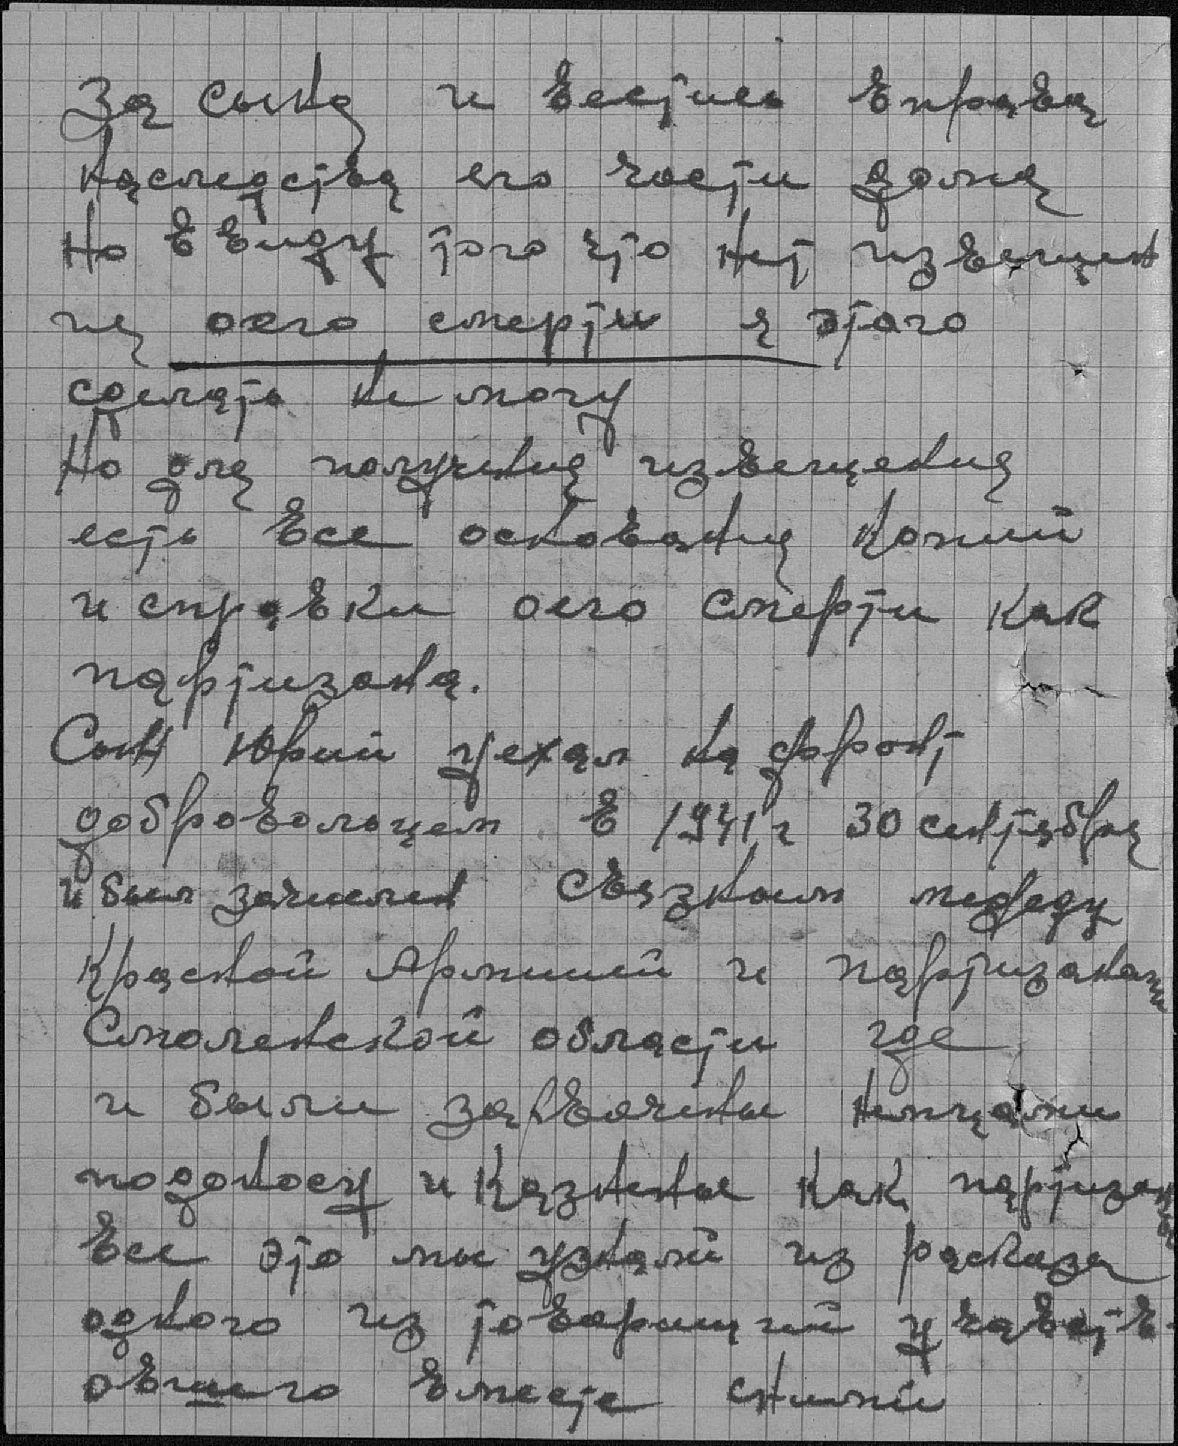 За сына и вестись в права
наследства его части дома
Но в виду того что нет извещен
ия оего смерти я этого
сделать не могу
Но для получения извещения
есть все основания копий
и справки оего смерти как
партизана.
Сын Юрий уехал на фронт
добровольцем в 1941 г 30 сентября
и был зачислен связным между
Красной Армией и партизанами
Смоленской области где
и были захвачены немцами
подоносу и казнены как партизаны
все это мы узнали из расказа
одного из товарищий участв-
овшего вместе сними